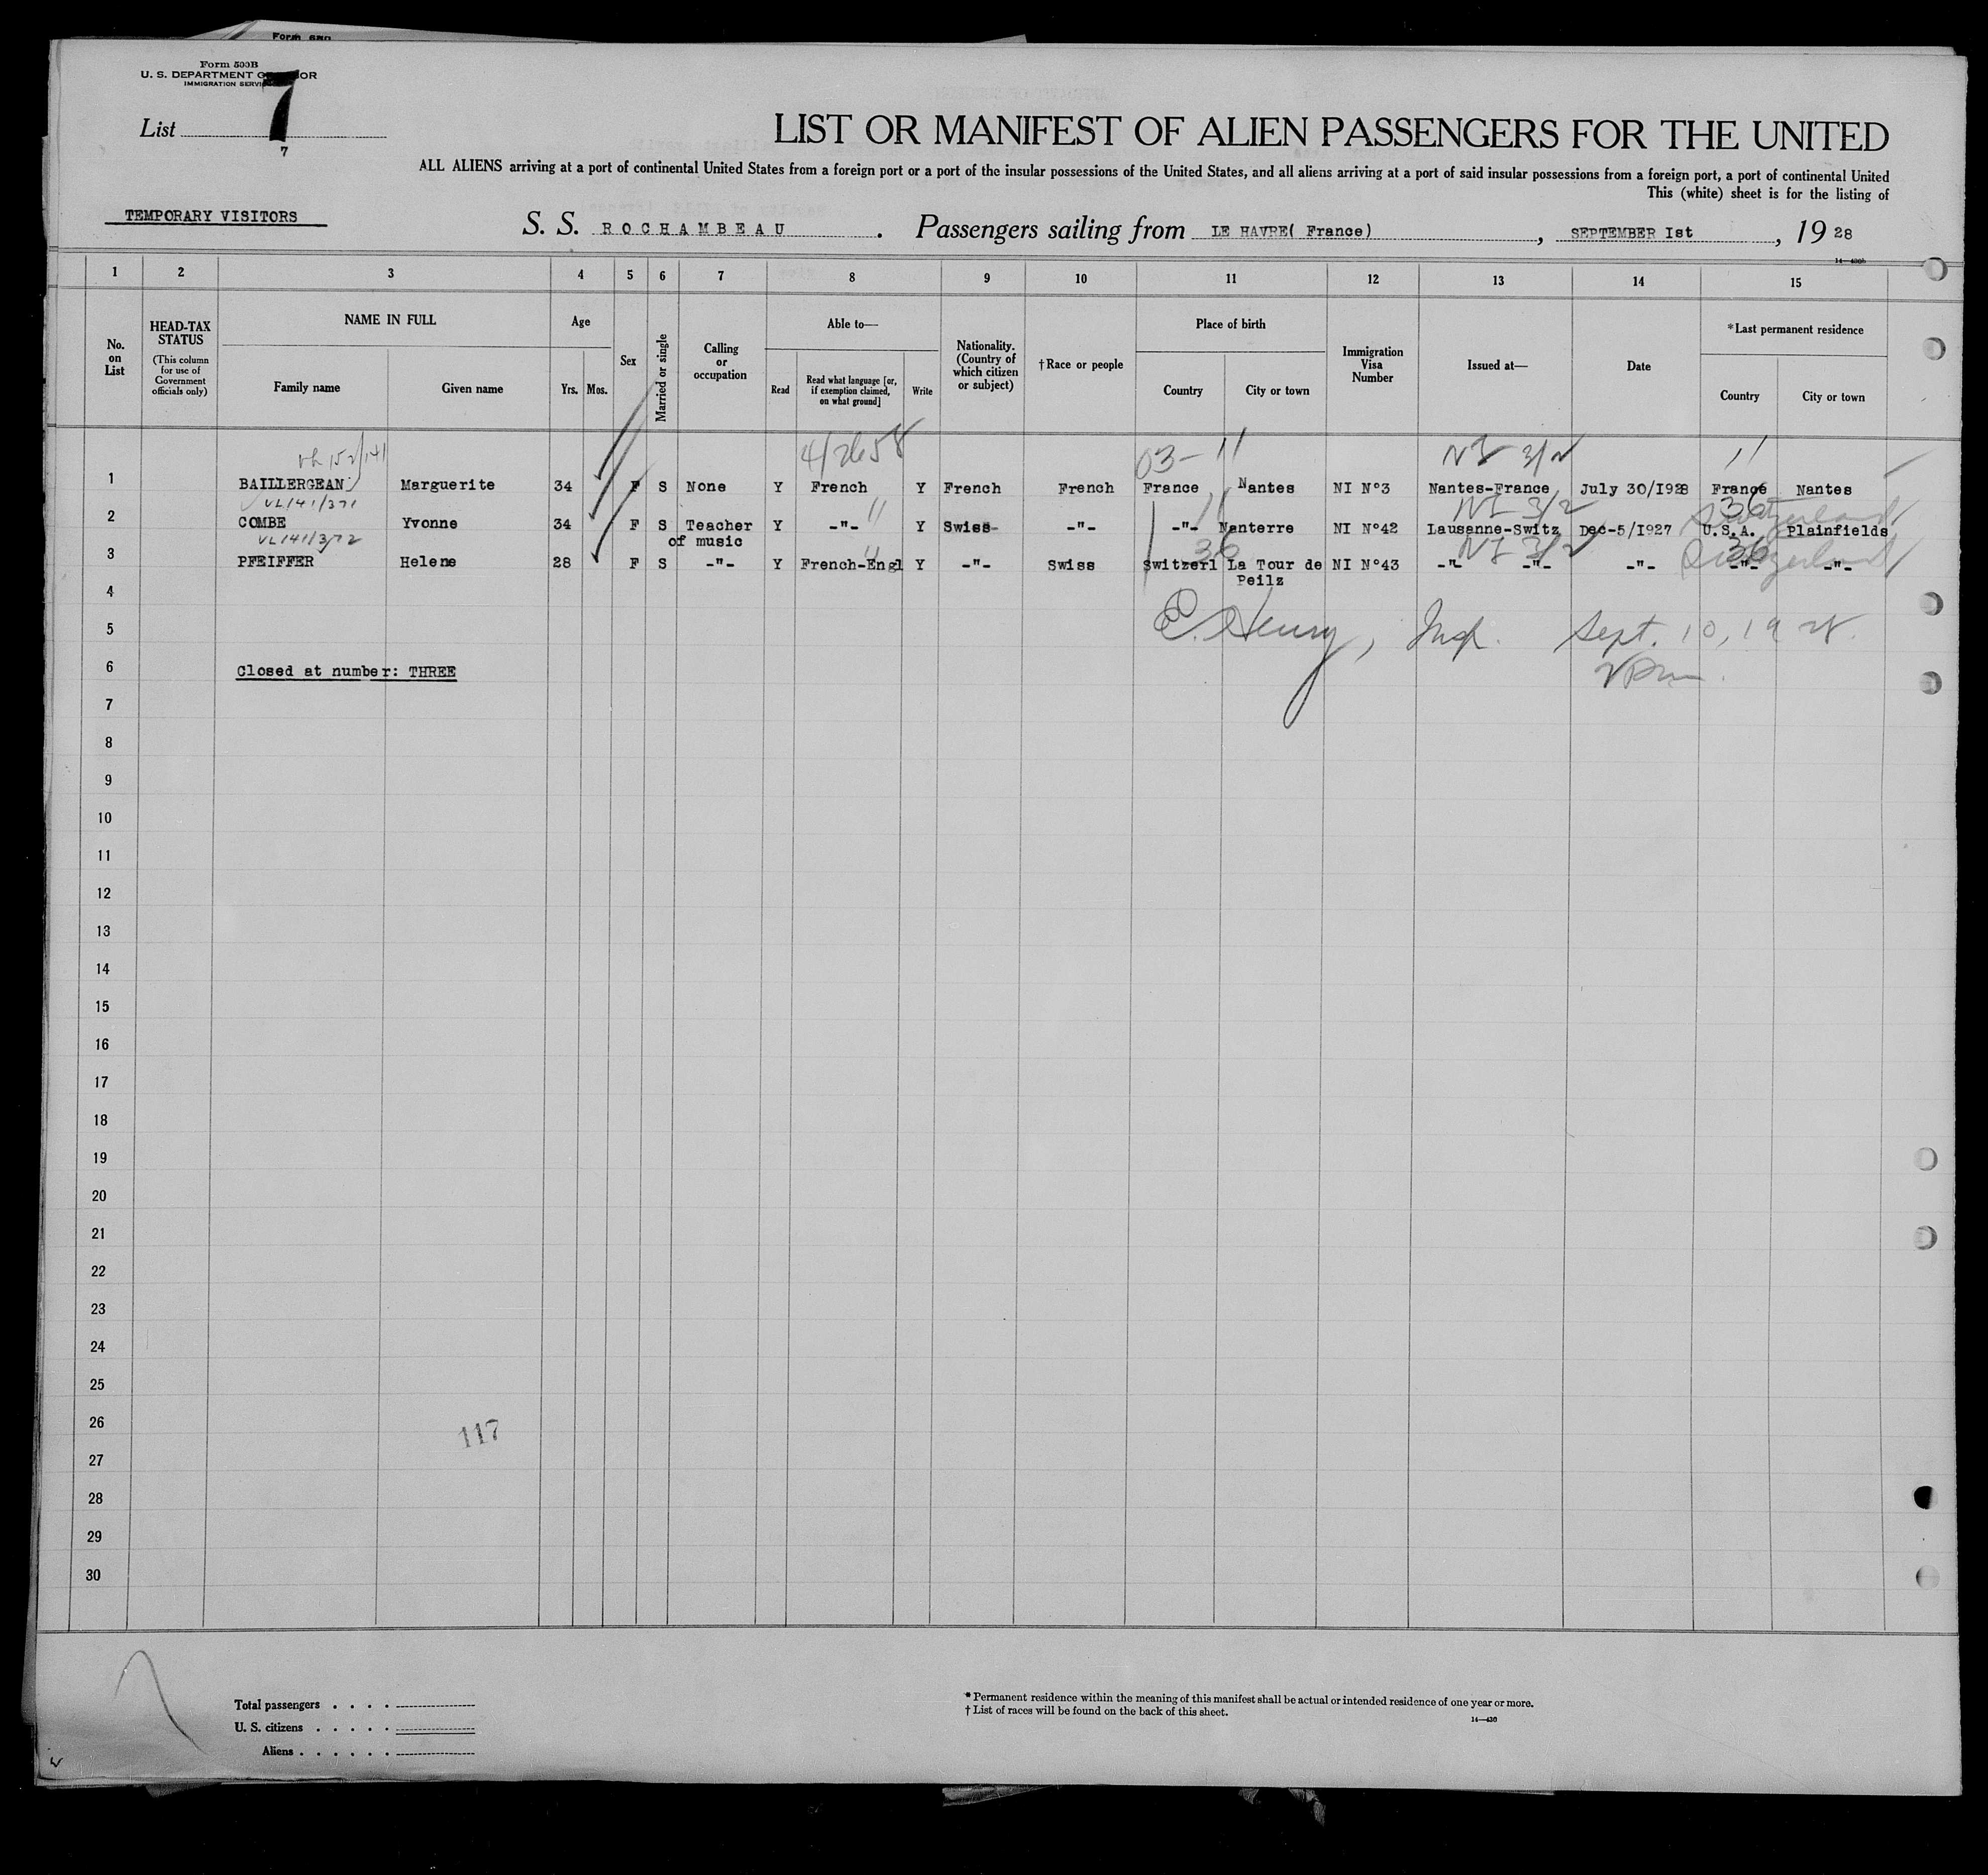 Form 500B
U. S. DEPARTMENT OF LABOR
IMMIGRATION SERVICE
List 7
7
LIST OR MANIFEST OF ALIEN PASSENGERS FOR THE UNITED
ALL ALIENS arriving at a port of continental United States from a foreign port or a port of the insular possessions of the United States, and all aliens arriving at a port of said insular possessions from a foreign port, a port of continental United
This (white) sheet is for the listing of
TEMPORARY VISITORS
S. S. ROCHAMBEAU . Passengers sailing from LE HAVRE( France) , SEPTEMBER Ist , 19 28
1 2 3 4 5 6 7 8 9 10 11 12 13 14 15
No. on List
HEAD-TAX STATUS
(This column for use of Government officials only)
NAME IN FULL
Family name Given name
Age
Yrs. Mos.
Sex
Married or single
Calling or occupation
Able to—
Read Read what language [or, if exemption claimed, on what ground] Write
Nationality. (Country of which citizen or subject)
†Race or people
Place of birth
Country City or town
Immigration Visa Number
Issued at—
Date
*Last permanent residence
Country City or town
4/2658 03- 11 11
1 BAILLERGEAN Marguerite 34 F S None Y French Y French French France Nantes NI N°3 Nantes-France July 30/I928 France Nantes
VL141/371 11 11 NI 3/2 36 Switzerland
2 COMBE Yvonne 34 F S Teacher of music Y -"- Y Swiss- -"- -"- Nanterre NI N°42 Lausanne-Switz Dec-5/I927 U.S.A. Plainfields
VL141/372 36 NI 3/2 36 Switzerland
3 PFEIFFER Helene 28 F S -"- Y French-Engl Y -"- Swiss Switzerl La Tour de Peilz NI N°43 -"- -"- -"- -"- -"-
4
5 E. Henry, Insp. Sept. 10, 1928.
6 Closed at number: THREE 2 Pm
7
8
9
10
11
12
13
14
15
16
17
18
19
20
21
22
23
24
25
26
117
27
28
29
30
Total passengers . . . .
U. S. citizens . . . . .
Aliens . . . . . .
* Permanent residence within the meaning of this manifest shall be actual or intended residence of one year or more.
† List of races will be found on the back of this sheet.
14—430